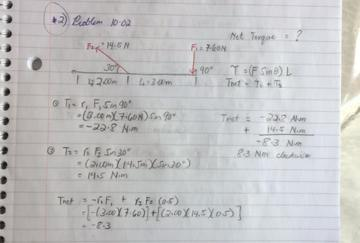 #2) Problem 10.02
Net Torque = ?
F₂ = 14.5 N
F₁ = 7.60N
30°
90°
τ = (F sinθ) L
L = 3.00m
Tnet = T₁ + T₂
① T₁ = r₁ F₁ Sin 90°
= (3.00m)(7.60N) Sin 90°
= -22.8 N·m
Tnet = -22.8 N·m
+ 14.5 N·m
-8.3 N·m
8.3 N·m clockwise
② T₂ = r₂ F₂ Sin 30°
= (2.00m)(14.5m)(Sin 30°)
= 14.5 N·m
Tnet = -r₁F₁ + r₂ F₂ (0.5)
= [-(3.00)(7.60)] + [(2.00)(14.5)(0.5)]
= -8.3